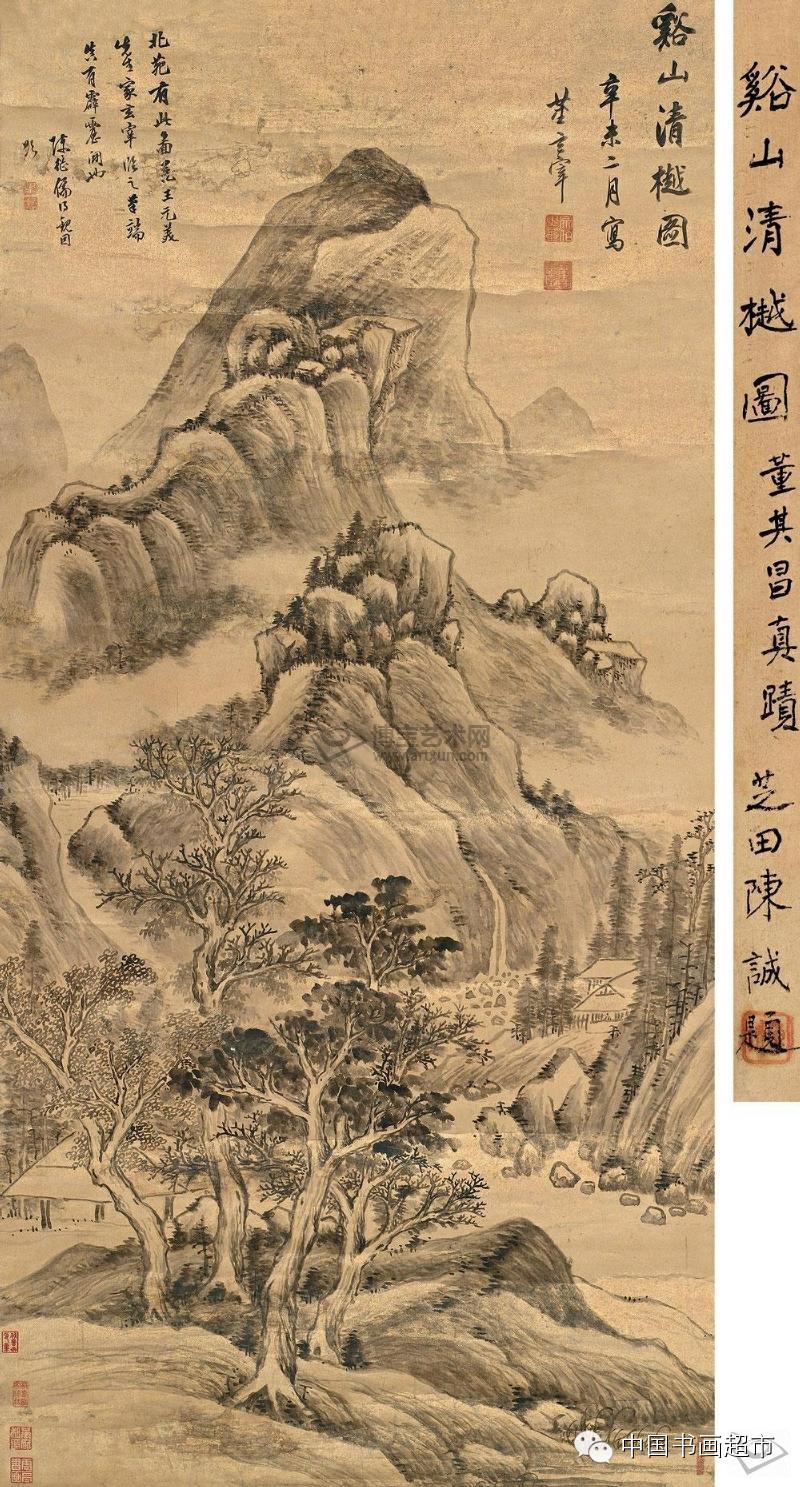 谿山清樾圖
辛未二月寫
董玄宰
北苑有此圖藏王元美
先生家玄宰臨之筆端
真有霹靂聞也
陳繼儒得觀因
題
谿山清樾圖 董其昌真蹟 芝田陳誠題
博宝艺术网
www.artxun.com
中国书画超市